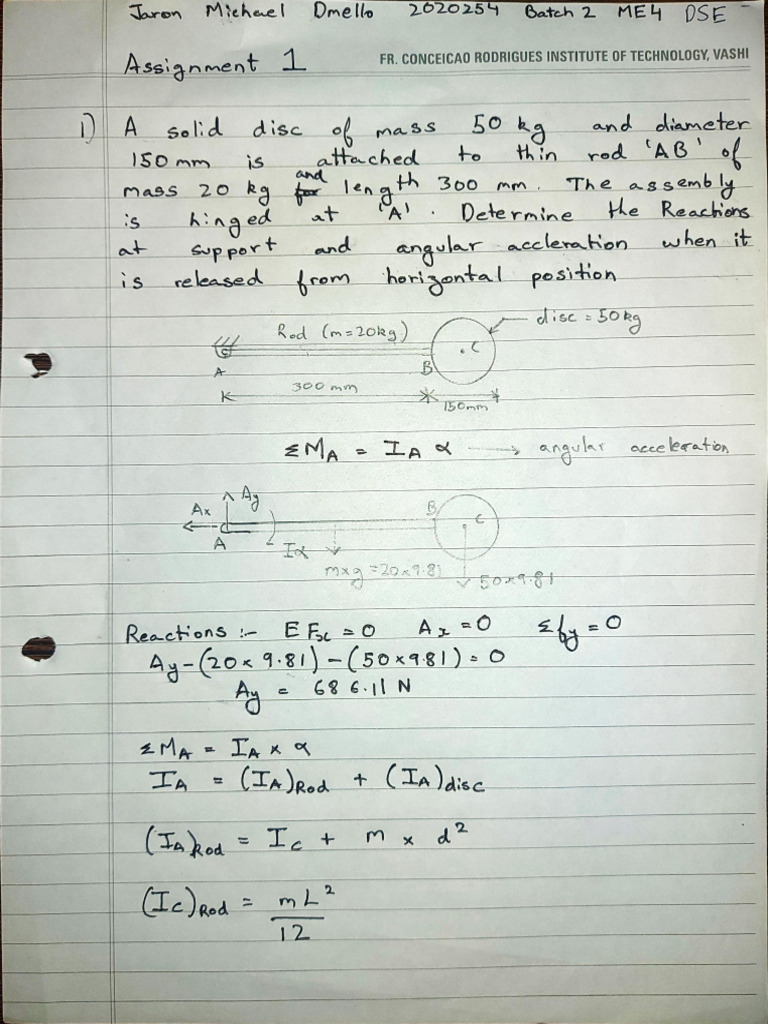 Jaron Michael Dmello 2020254 Batch 2 ME4 DSE
Assignment 1
FR. CONCEICAO RODRIGUES INSTITUTE OF TECHNOLOGY, VASHI
1) A solid disc of mass 50 kg and diameter
150 mm is attached to thin rod 'AB' of
mass 20 kg and length 300 mm. The assembly
is hinged at 'A'. Determine the Reactions
at support and angular accleration when it
is released from horizontal position
Rod (m=20kg)
disc = 50kg
C
A
B
300 mm
150mm
ΣMA = IA α → angular acceleration
Ax
Ay
B
C
A
Iα
mxg = 20x9.81
50x9.81
Reactions :- Σ Fx = 0 Ax = 0 Σfy = 0
Ay - (20 x 9.81) - (50 x 9.81) = 0
Ay = 686.11 N
ΣMA = IA x α
IA = (IA)Rod + (IA)disc
(IA)Rod = Ic + m x d²
(Ic)Rod = mL²
12